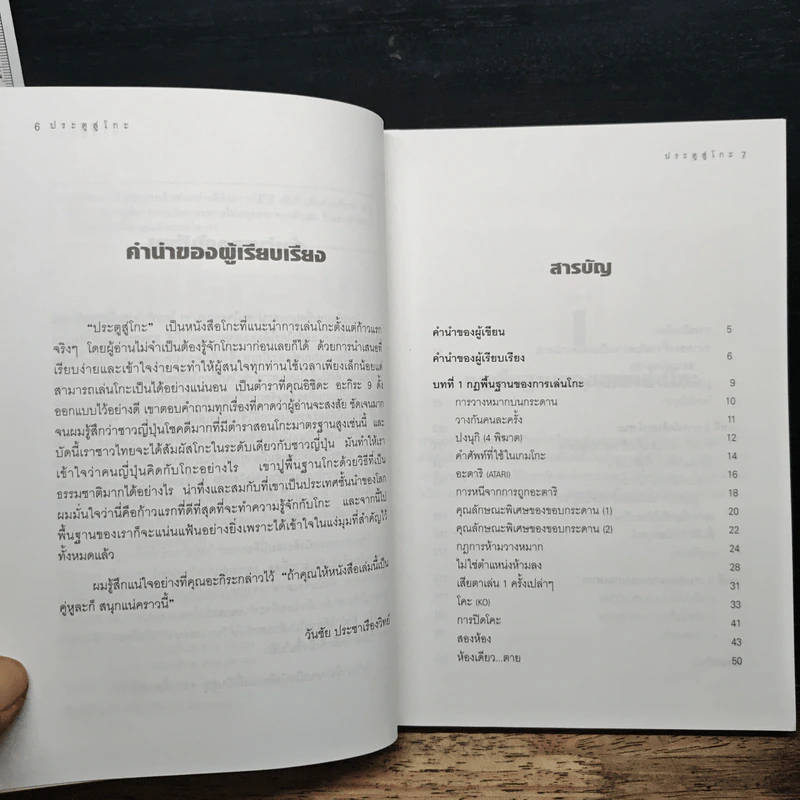 6 ประตูสู่โกะ
คำนำของผู้เรียบเรียง
"ประตูสู่โกะ" เป็นหนังสือโกะที่แนะนำการเล่นโกะตั้งแต่ก้าวแรก
จริงๆ โดยผู้อ่านไม่จำเป็นต้องรู้จักโกะมาก่อนเลยก็ได้ ด้วยการนำเสนอที่
เรียบง่ายและเข้าใจง่ายจะทำให้ผู้สนใจทุกท่านใช้เวลาเพียงเล็กน้อยแต่
สามารถเล่นโกะเป็นได้อย่างแน่นอน เป็นตำราที่คุณอิชิดะ อะกิระ 9 ดั้ง
ออกแบบไว้อย่างดี เขาตอบคำถามทุกเรื่องที่คาดว่าผู้อ่านจะสงสัย ชัดเจนมาก
จนผมรู้สึกว่าชาวญี่ปุ่นโชคดีมากที่มีตำราสอนโกะมาตรฐานสูงเช่นนี้ และ
บัดนี้เราชาวไทยจะได้สัมผัสโกะในระดับเดียวกับชาวญี่ปุ่น มันทำให้เรา
เข้าใจว่าคนญี่ปุ่นคิดกับโกะอย่างไร เขาปูพื้นฐานโกะด้วยวิธีที่เป็น
ธรรมชาติมากได้อย่างไร น่าทึ่งและสมกับที่เขาเป็นประเทศชั้นนำของโลก
ผมมั่นใจว่านี่คือก้าวแรกที่ดีที่สุดที่จะทำความรู้จักกับโกะ และจากนี้ไป
พื้นฐานของเราก็จะแน่นแฟ้นอย่างยิ่งเพราะได้เข้าใจในแง่มุมที่สำคัญไว้
ทั้งหมดแล้ว
ผมรู้สึกแน่ใจอย่างที่คุณอะกิระกล่าวไว้ "ถ้าคุณให้หนังสือเล่มนี้เป็น
คู่หูละก็ สนุกแน่คราวนี้"
วันชัย ประชาเรืองวิทย์
ประตูสู่โกะ 7
สารบัญ
คำนำของผู้เขียน 5
คำนำของผู้เรียบเรียง 6
บทที่ 1 กฎพื้นฐานของการเล่นโกะ 9
การวางหมากบนกระดาน 10
วางกันคนละครั้ง 11
ปงนุกิ (4 พิฆาต) 12
คำศัพท์ที่ใช้ในเกมโกะ 14
อะตาริ (ATARI) 16
การหนีจากการถูกอะตาริ 18
คุณลักษณะพิเศษของขอบกระดาน (1) 20
คุณลักษณะพิเศษของขอบกระดาน (2) 22
กฎการห้ามวางหมาก 24
ไม่ใช่ตำแหน่งห้ามลง 28
เสียตาเล่น 1 ครั้งเปล่าๆ 31
โคะ (KO) 33
การปิดโคะ 41
สองห้อง 43
ห้องเดียว...ตาย 50